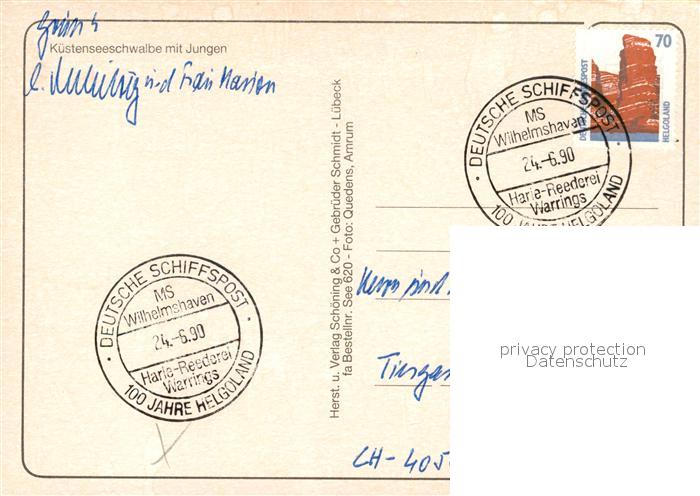 Küstenseeschwalbe mit Jungen
und Frau Marion
70
DEUTSCHE BUNDESPOST
HELGOLAND
DEUTSCHE SCHIFFSPOST
MS
Wilhelmshaven
24.-6.90
Harle-Reederei
Warrings
100 JAHRE HELGOLAND
Herst. u. Verlag Schöning & Co + Gebrüder Schmidt - Lübeck
fa Bestellnr. See 620 - Foto: Quedens, Amrum
DEUTSCHE SCHIFFSPOST
MS
Wilhelmshaven
24.-6.90
Harle-Reederei
Warrings
100 JAHRE HELGOLAND
Herrn und
privacy protection
Datenschutz
Tiergar
CH-405